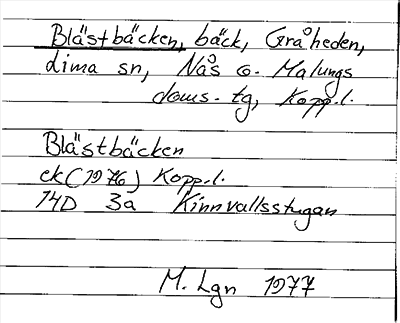 Blästbäcken, bäck, Gråheden,
Lima sn, Nås o. Malungs
doms. tg, Kopp.l.
Blästbäcken
ek (1976) Kopp.l.
14D 3a Kinnvallsstugan
M. Lgn 1977